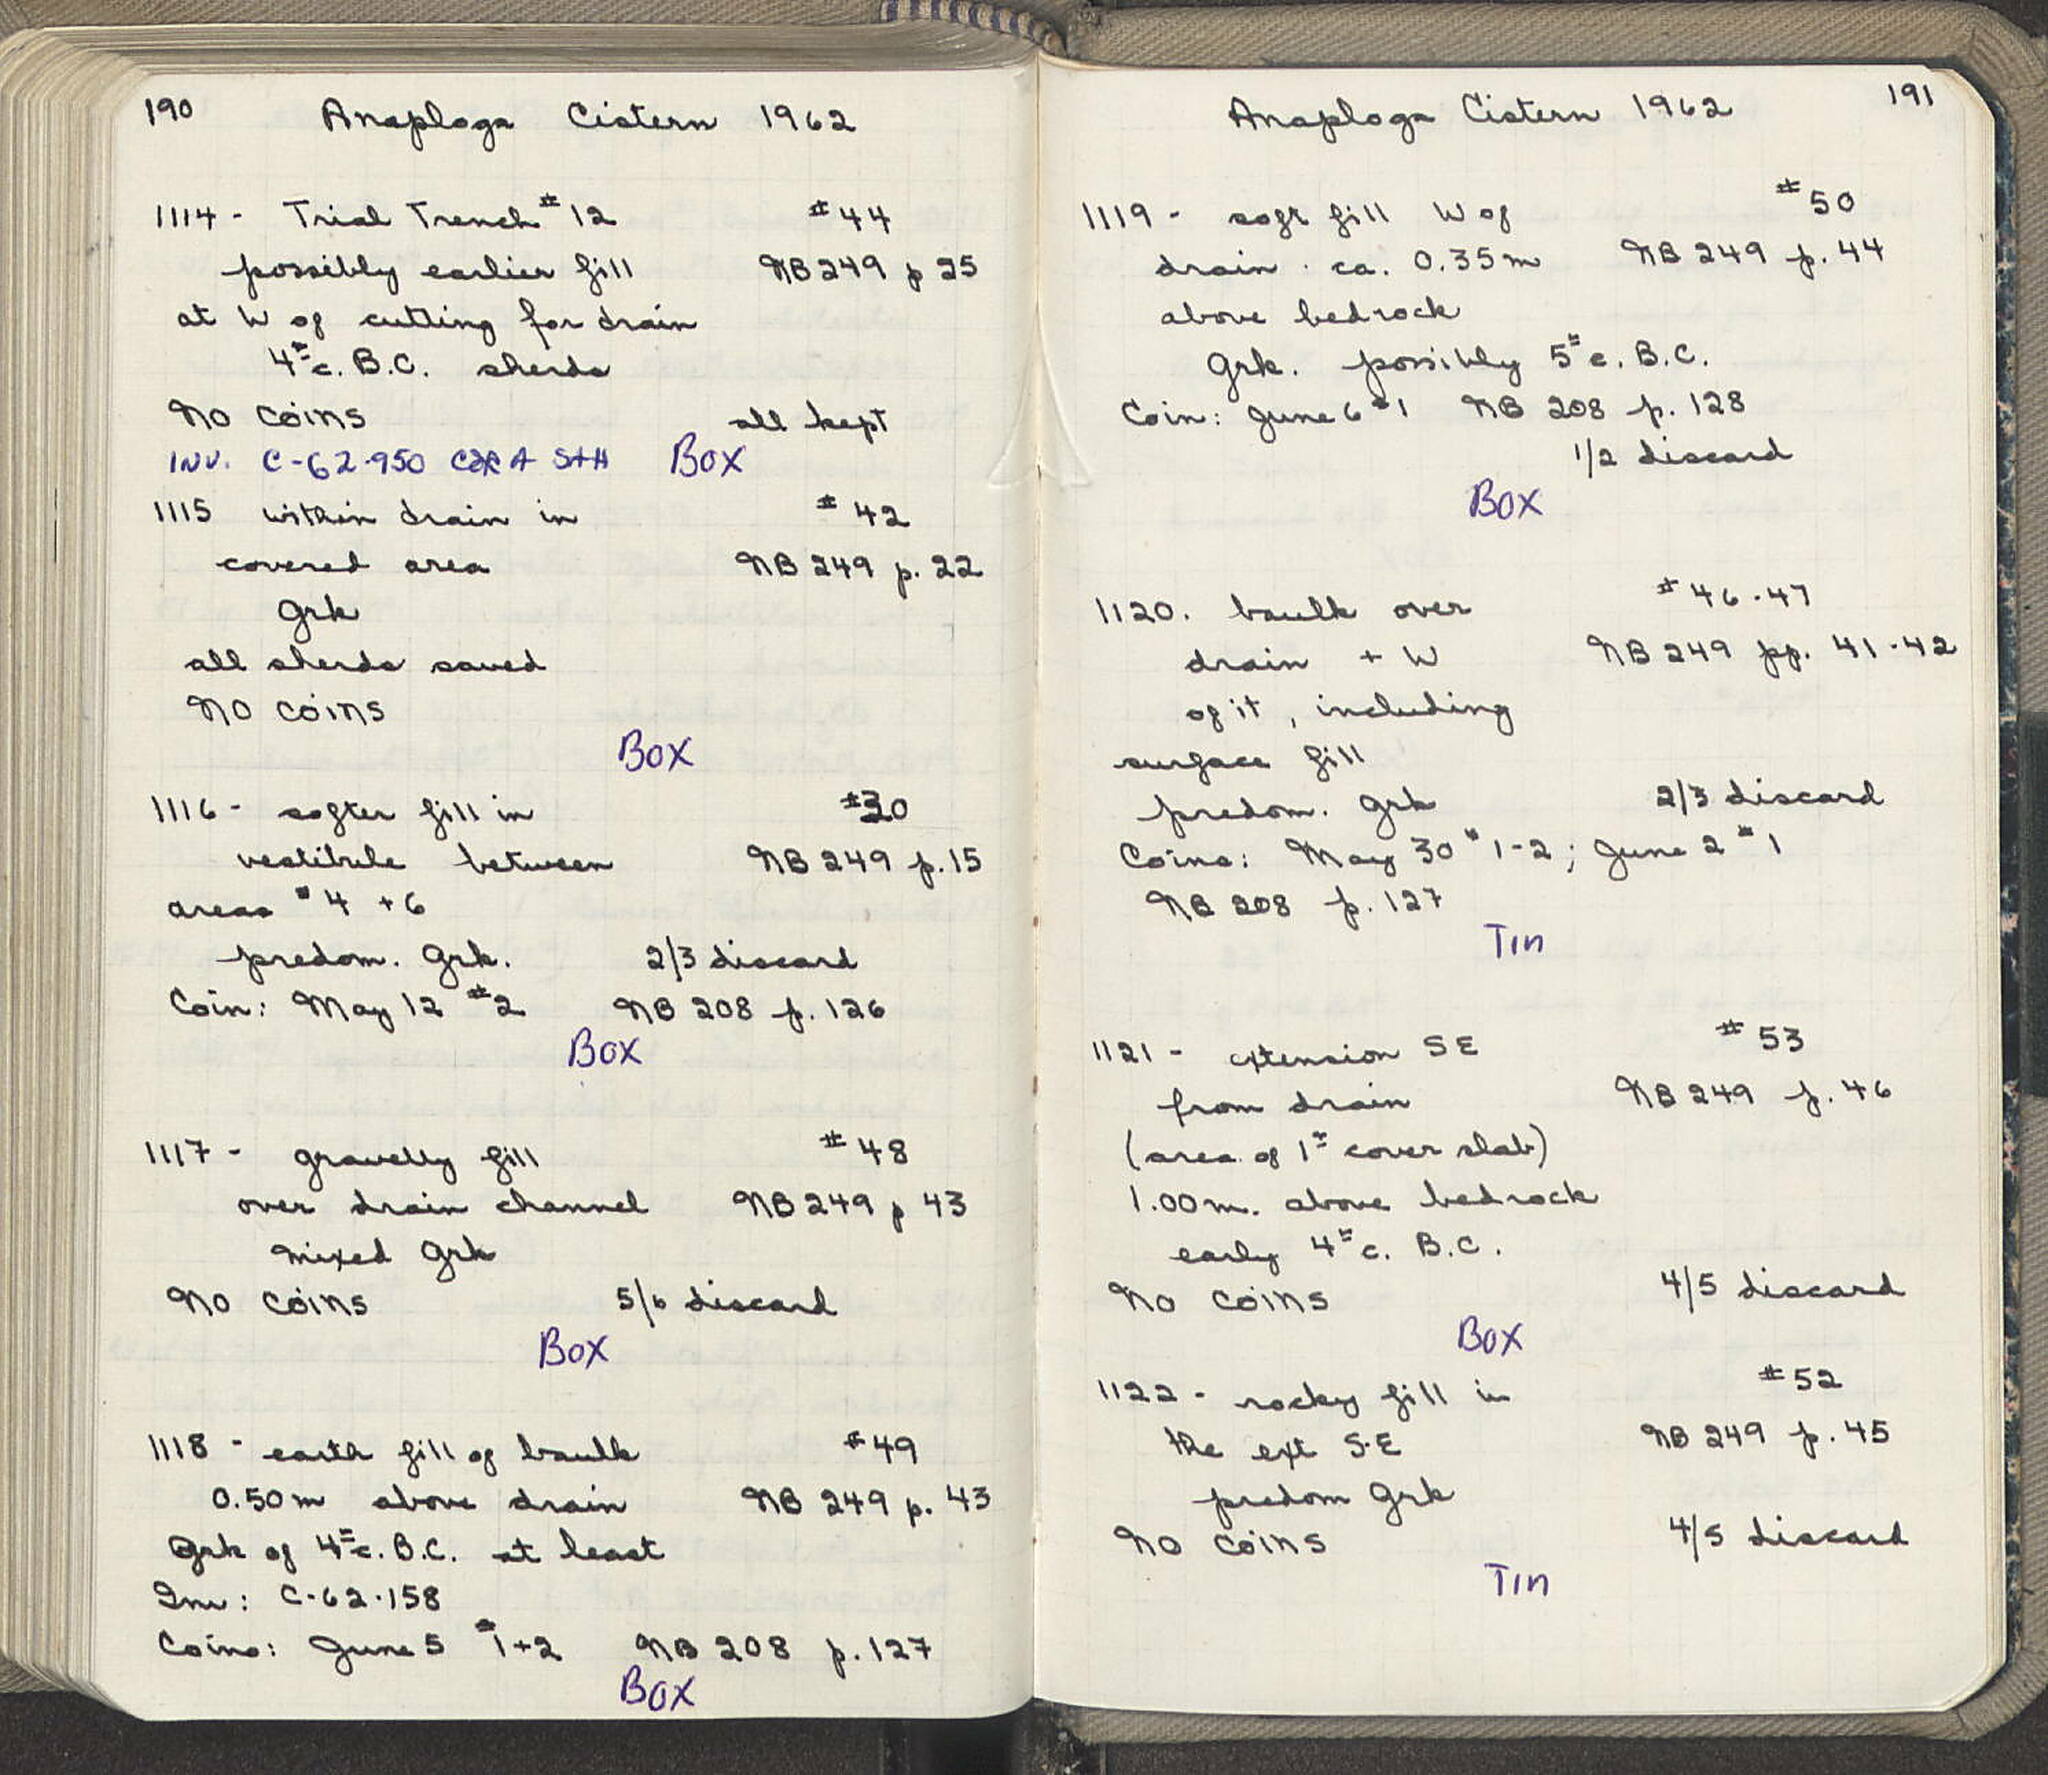 190 Anaploga Cistern 1962
1114 - Trial Trench #12 #44
possibly earlier fill NB 249 p 25
at W of cutting for drain
4th c. B.C. sherds
No coins all kept
INV. C-62-950 STH BOX
1115 within drain in #42
covered area NB 249 p. 22
Grk
all sherds saved
No coins
BOX
1116 - softer fill in #30
vestibule between NB 249 p. 15
areas #4 + 6
predom. Grk. 2/3 discard
Coin: May 12 #2 NB 208 p. 126
BOX
1117 - gravelly fill #48
over drain channel NB 249 p 43
mixed Grk
No coins 5/6 discard
BOX
1118 - earth fill of baulk #49
0.50m above drain NB 249 p. 43
Grk of 4th c. B.C. at least
Inv: C-62-158
Coins: June 5 #1+2 NB 208 p. 127
BOX
Anaploga Cistern 1962 191
1119 - soft fill W of #50
drain. ca. 0.35m NB 249 p. 44
above bedrock
Grk. possibly 5th c. B.C.
Coin: June 6 #1 NB 208 p. 128
1/2 discard
BOX
1120. baulk over #46-47
drain + W NB 249 pp. 41-42
of it, including
surface fill
predom. Grk 2/3 discard
Coins: May 30 #1-2; June 2 #1
NB 208 p. 127
Tin
1121 - extension SE #53
from drain NB 249 p. 46
(area of 1st cover slab)
1.00m. above bedrock
early 4th c. B.C.
No coins 4/5 discard
BOX
1122 - rocky fill in #52
the ext S-E NB 249 p. 45
predom Grk
No coins 4/5 discard
Tin